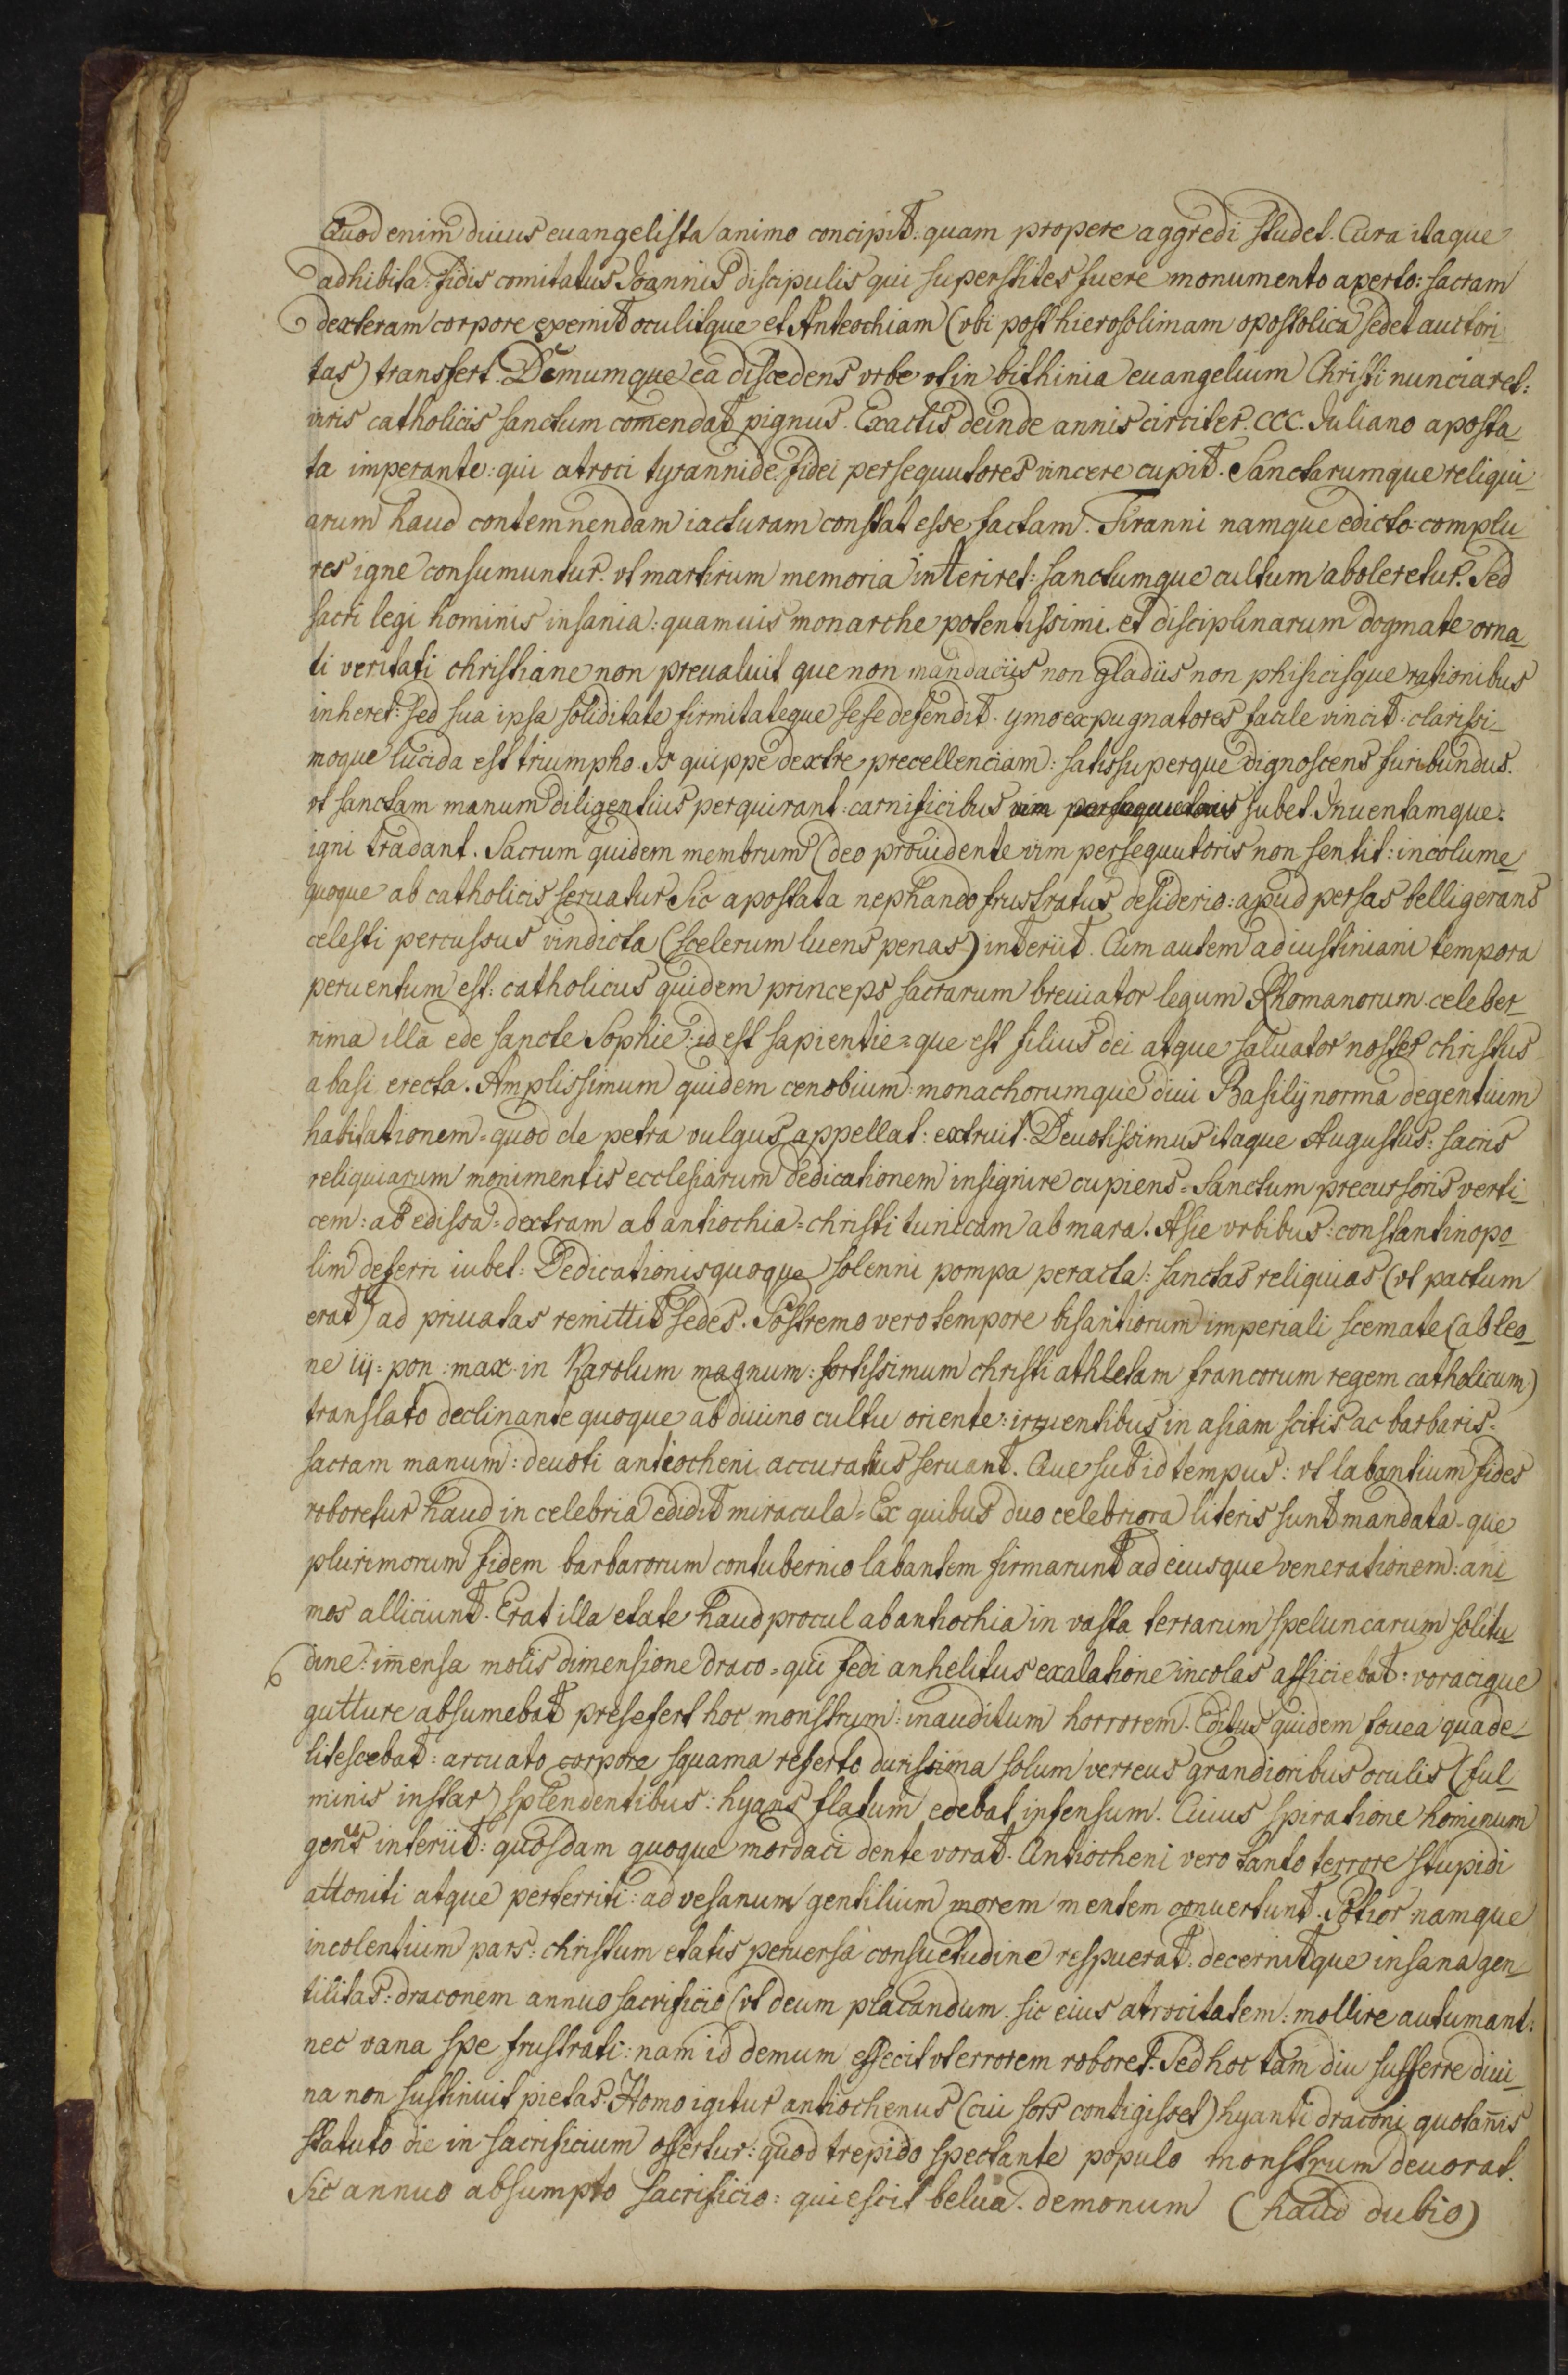 Quod enim diuus euangelista animo concipit: quam propere aggredi studet. Cura itaque
adhibita: fidis comitatus Joannis discipulis qui superstites fuere monumento aperto: sacram
dexteram corpore exemit oculitque et Anteochiam (vbi post hierosolimam opostolica sedet auctori_
tas) transfert. Demumque ea discedens vrbe vt in bithinia euangelium Christi nunciaret:
viris catholicis sanctum comendat pignus. Exactis deinde annis circiter. CCC. Iuliano aposta_
ta imperante: qui atroci tyrannide fidei persequutores vincere cupit. Sanctarumque reliqui_
arum haud contemnendam iacturam constat esse factam. Tiranni namque edicto complu_
res igne consumuntur. vt martirum memoria interiret: sanctumque cultum aboleretur. Sed
sacri legi hominis insania: quamuis monarche potentissimi. et disciplinarum dogmate orna_
ti veritati christiane non preualuit que non mandaciis non gladiis non phisicisque rationibus
inheret: sed sua ipsa soliditate firmitateque sese defendit. ymo expugnatores facile vincit. clarissi_
moque lucida est triumpho. Is quippe dextre precellenciam: satis superque dignoscens furibundus.
vt sanctam manum diligentius perquirant: carnificibus vim persequutoris Jubet. Inuentamque:
igni tradant. Sacrum quidem membrum (deo prouidente vim persequutoris non sentit: incolume
quoque ab catholicis seruatur Sic apostata nephando frustratus desiderio: apud persas belligerans
celesti percussus vindicta (scelerum luens penas) interiit. Cum autem ad iustiniani tempora
peruentum est: catholicus quidem princeps sacrarum breuiator legum Rhomanorum. celeber_
rima illa ede sancte Sophie: id est sapientie = que est filius dei atque saluator noster christus
a basi erecta. Amplissimum quidem cenobium: monachorumque diui Basilij norma degentium
habitationem = quod de petra vulgus appellat: extruit. Deuotissimus itaque Augustus: sacris
reliquiarum monimentis ecclesiarum dedicationem insignire cupiens = Sanctum precursoris verti_
cem: ab edissa = dextram ab antiochia = christi tunicam ab mara. Asie vrbibus: constantinopo_
lim deferri iubet: Dedicationisquoque solenni pompa peracta: sanctas reliquias (vt pactum
erat) ad priuatas remittit sedes. Postremo vero tempore bisantiorum imperiali scemate (ab leo_
ne iij = pon: max. in Karolum magnum: fortissimum christi athletam francorum regem catholicum)
translato declinante quoque ab diuino cultu oriente: irruentibus in asiam scitis ac barbaris.
sacram manum: deuoti antiocheni accuratius seruant. Que sub id tempus: vt labantium fides
roboretur haud in celebria edidit miracula = Ex quibus duo celebriora literis sunt mandata = que
plurimorum fidem barbarorum contubernio labantem firmarunt ad eiusque venerationem: ani_
mos alliciunt. Erat illa etate haud procul ab antiochia in vasta terrarum speluncarum solitu_
dine: im̄ensa molis dimensione draco = qui fedi anhelitus exalatione incolas afficiebat: voracique
gutture absumebat presefert hoc monstrum: inauditum horrorem. Editus quidem fouea qua de_
litescebat: arcuato corpore squama referto durissima solum verreus grandioribus oculis (ful_
minis instar) splendentibus: hyans flatum edebat infensum. Cuius spiratione hominum
genus interiit: quosdam quoque mordaci dente vorat. Antiocheni vero tanto terrore stupidi
attoniti atque perterriti: ad vesanum gentilium morem mentem conuertunt. Potior namque
incolentium pars: christum etatis peruersa consuetudine respuerat. decernitque insana gen_
tilitas: draconem annuo sacrificio (vt deum placandum. sic eius atrocitatem: mollire autumant:
nec vana spe frustrati: nam id demum effecit vt errorem roboret. Sed hoc tam diu sufferre diui_
na non sustinuit pietas. Homo igitur antiochenus (cui sors contigisset) hyanti draconi quotan̄is
statuto die in sacrificium offertur: quod trepido spectante populo monstrum deuorat.
Sic annuo absumpto sacrificio: quiescit belua. demonum (haud dubio)